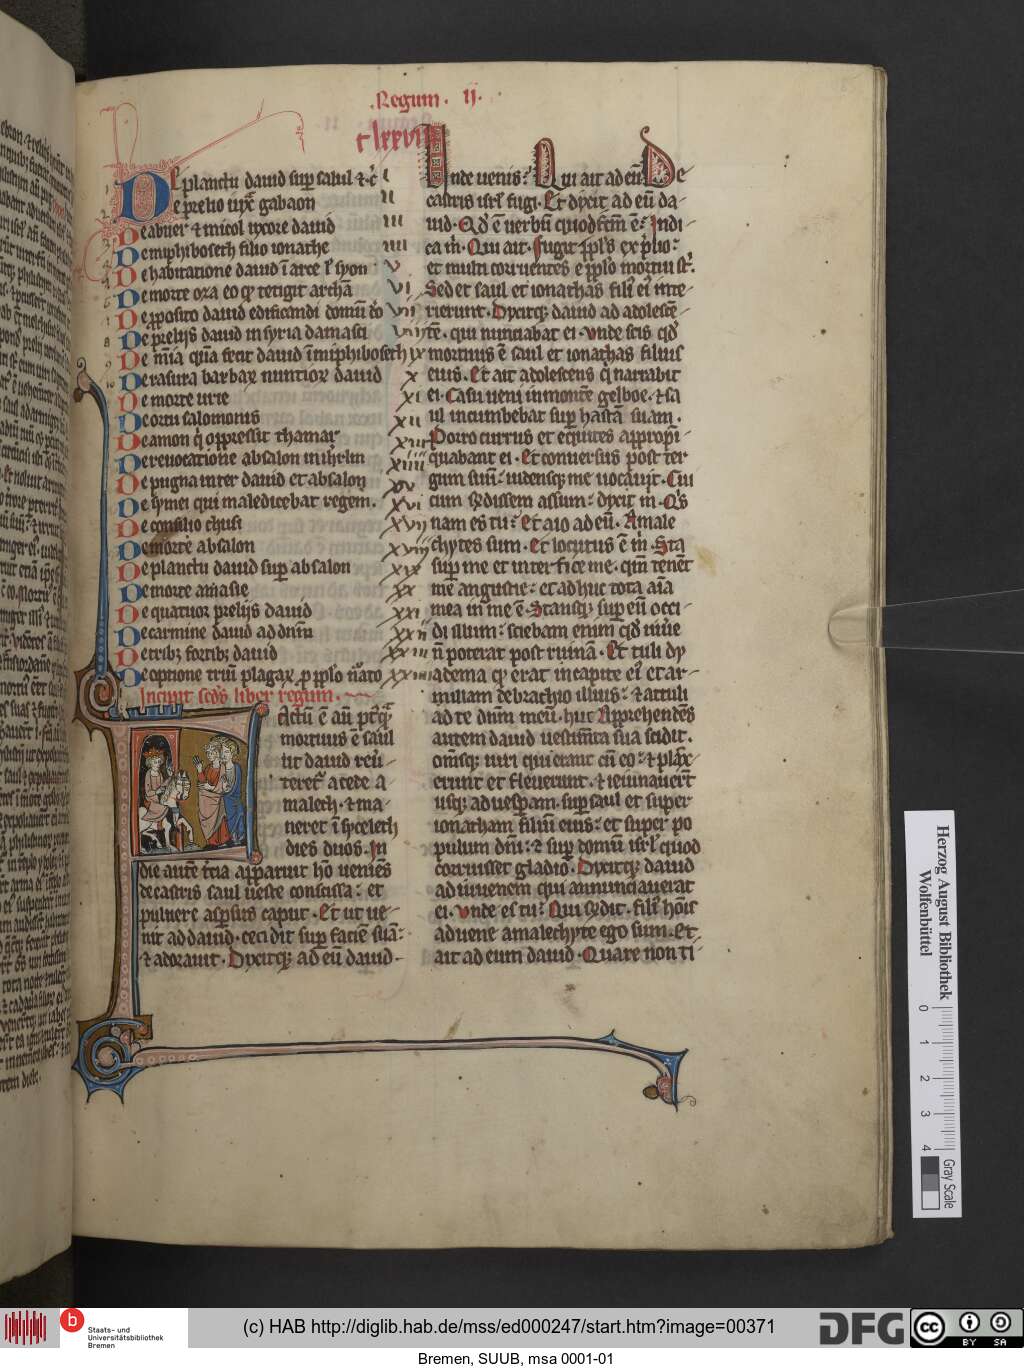 .Regum. II.
clxxvii
De planctu dauid sup saul & c̄ I
De prelio iuxᵃ gabaon II
De abner & micol uxore dauid III
De miphiboseth filio ionathe IIII
De habitatione dauid ī arce ł syon V
De morte oza eo qᵈ tetigit archā VI
De p̱posito dauid edificandi domū dō VII
De prelijs dauid in syria damasci VIII
De m̄ia quā fecit dauid ī miphiboseth IX
De rasura barbaꝝ nuntioꝝ dauid X
De morte urie XI
De ortu salomonis XII
De amon q̇ oppressit thamar XIII
De reuocatione absalon in ihrlm XIIII
De pugna inter dauid et absalon XV
De symei qui maledicebat regem. XVI
De consilio chusi XVII
De morte absalon XVIII
De planctu dauid sup absalon XIX
De morte amasie XX
De quatuor prelijs dauid XXI
De carmine dauid ad dnm̄ XXII
De trib; fortib; dauid XXIII
De optione triū plagaꝝ p̱ pplo nūato XXIIII
Incipit scds liber regum.
Factū ē aū̄ pꝰtq̄
mortuus ē saul
ut dauid reū-
teretᷣ a cede a-
malech. & ma-
neret ī sycelech
dies duos. In
die aute t̄cia apparuit hō ueniēs
de castris saul ueste conscissa: et
puluere asp̱sus caput. Et ut ue-
nit ad dauid. cecidit sup faciē suā:
& adorauit. Dixitq; ad eū dauid.
Unde uenis? Qui ait ad eū. De
castris isrł fugi. Et dixit ad eū da-
uid. Qd̄ ē uerbū quod fc̄m ē? Indi-
ca m̄. Qui ait. Fugit ppłs ex p̄lio:
et multi corruentes e pplo mortui st̄.
Sed et saul et ionathas fili eī inte-
rierunt. Dixitq; dauid ad adolescē-
tē. qui nunciabat ei. Unde scis qd̄
mortuus ē saul et ionathas filius
eius. Et ait adolescens q̇ narrabat
ei. Casu ueni in monte gelboe. & sa
ul incumbebat sup hastā suam.
Porro currus et equites appropī-
quabant ei. Et conuersus post ter
gum suū: uidensq; me uocauit. Cui
cum r̄dissem assum: dixit m̄. Qͥs
nam es tu? Et aio ad eū. Amale
chytes sum. Et locutus ē m̄. Sta
sup me et interfice me. qm̄ tenēt
mē angustie: et adhuc tota aīa
mea in me ē. Stansq; sup eū occi-
di illum: sciebam enim qd̄ uiu̇e
n̄ poterat post ruinā. Et tuli dy
adema qᵈ erat in capite eī et ar-
millam de brachio illius: & attuli
ad te dnm̄ meū. huc Apprehendēs
autem dauid uestim̄ta sua scidit.
om̄sq; uiri qui erant cū eo: & plāx-
erunt et fleuerunt. & ieiunauerūt
usq; ad uesp̱am. sup saul et super
ionatham filiū eius: et super po
pulum dn̄i: & sup domū isrł quod
corruisset gladio. Dixitq; dauid
ad iuuenem qui annunciauerat
ei. Unde es tu? Qui r̄dit. filī hoīs
aduene amalechyte ego sum. Et
ait ad eum dauid. Quare non ti-
Herzog August Bibliothek
Wolfenbüttel
0 1 2 3 4
Gray Scale
b Staats- und
Universitätsbibliothek
Bremen
(c) HAB http://diglib.hab.de/mss/ed000247/start.htm?image=00371
DFG
cc BY SA
Bremen, SUUB, msa 0001-01